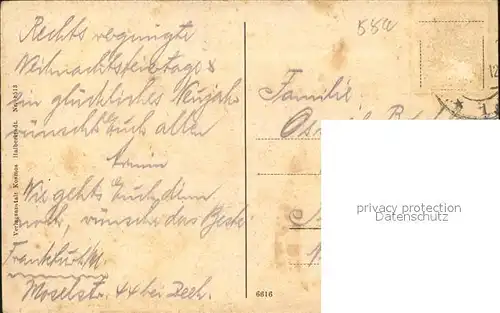 Rechts vergnügte
Weihnachtsfeiertage &
ein glückliches Neujahr
wünscht Euch allen
Armin
Wie gehts Euch denn
noch, wünsche das Beste
Frankfurt/M
Moselstr. 44 bei Zech.
Verlagsanstalt Kosmos Halberstadt.
Familie
privacy protection
Datenschutz
6616